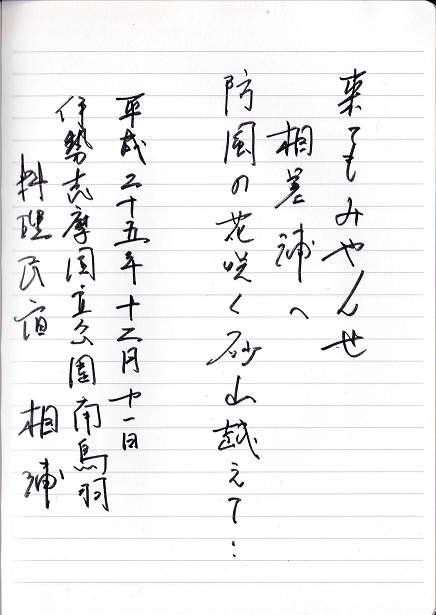 来てもみやんせ
相差浦へ
防風の花咲く砂山越えて…
平成二十五年十二月十一日
伊勢志摩国立公園南鳥羽
料理民宿 相浦